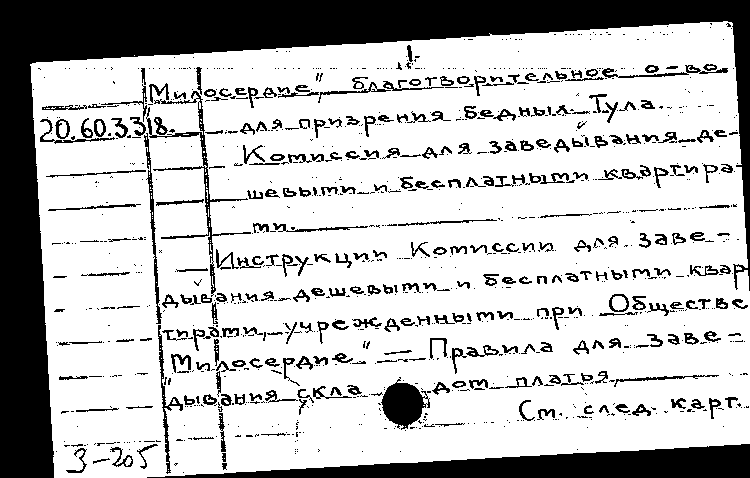 "Милосердие", благотворительное о-во
20.60.3318. для призрения бедных. Тула.
Комиссия для заведывания де-
шевыми и бесплатными квартира-
ми.
Инструкции Комиссии для заве-
дывания дешевыми и бесплатными квар-
тирами, учрежденными при Обществе
"Милосердие" — Правила для заве-
дывания складом платья.
См. след. карт.
3-205